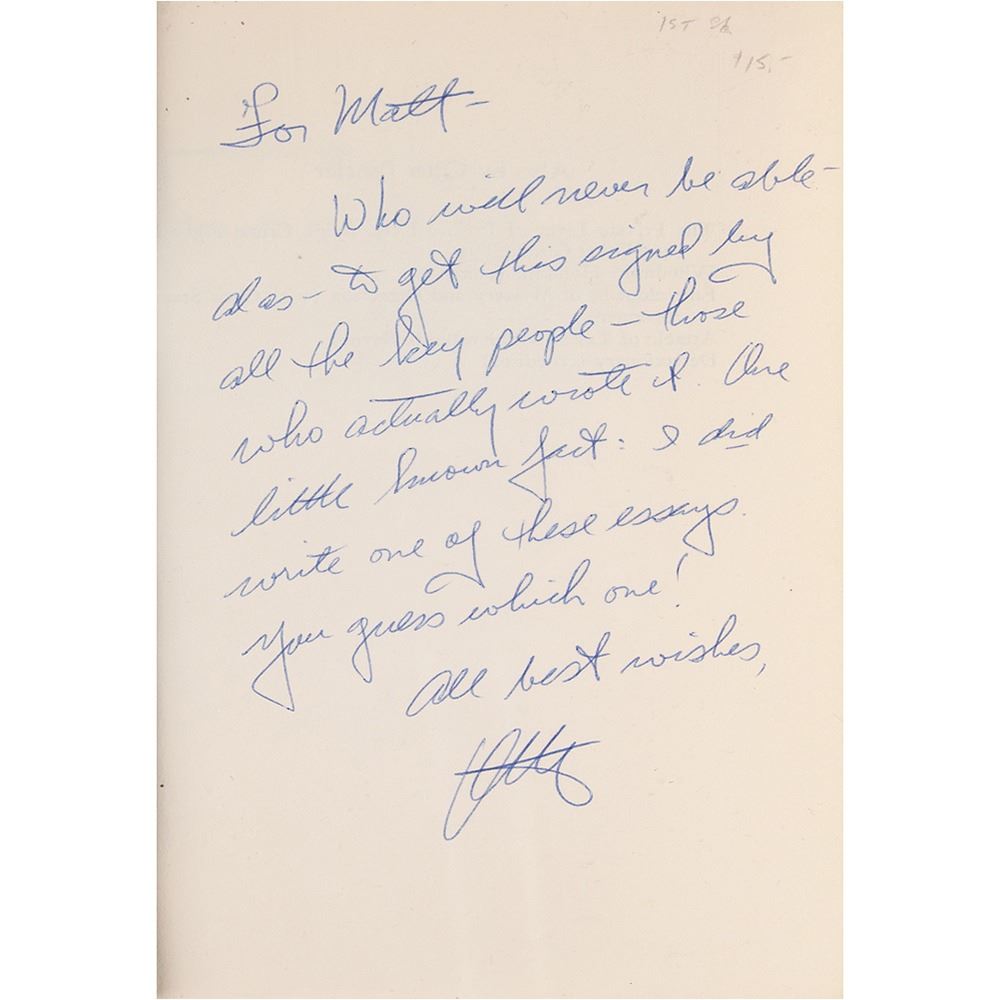 1ST
$15,-
For Matt-
Who will never be able-
alas- to get this signed by
all the key people - those
who actually wrote it. One
little known fact: I did
write one of these essays.
You guess which one!
All best wishes,